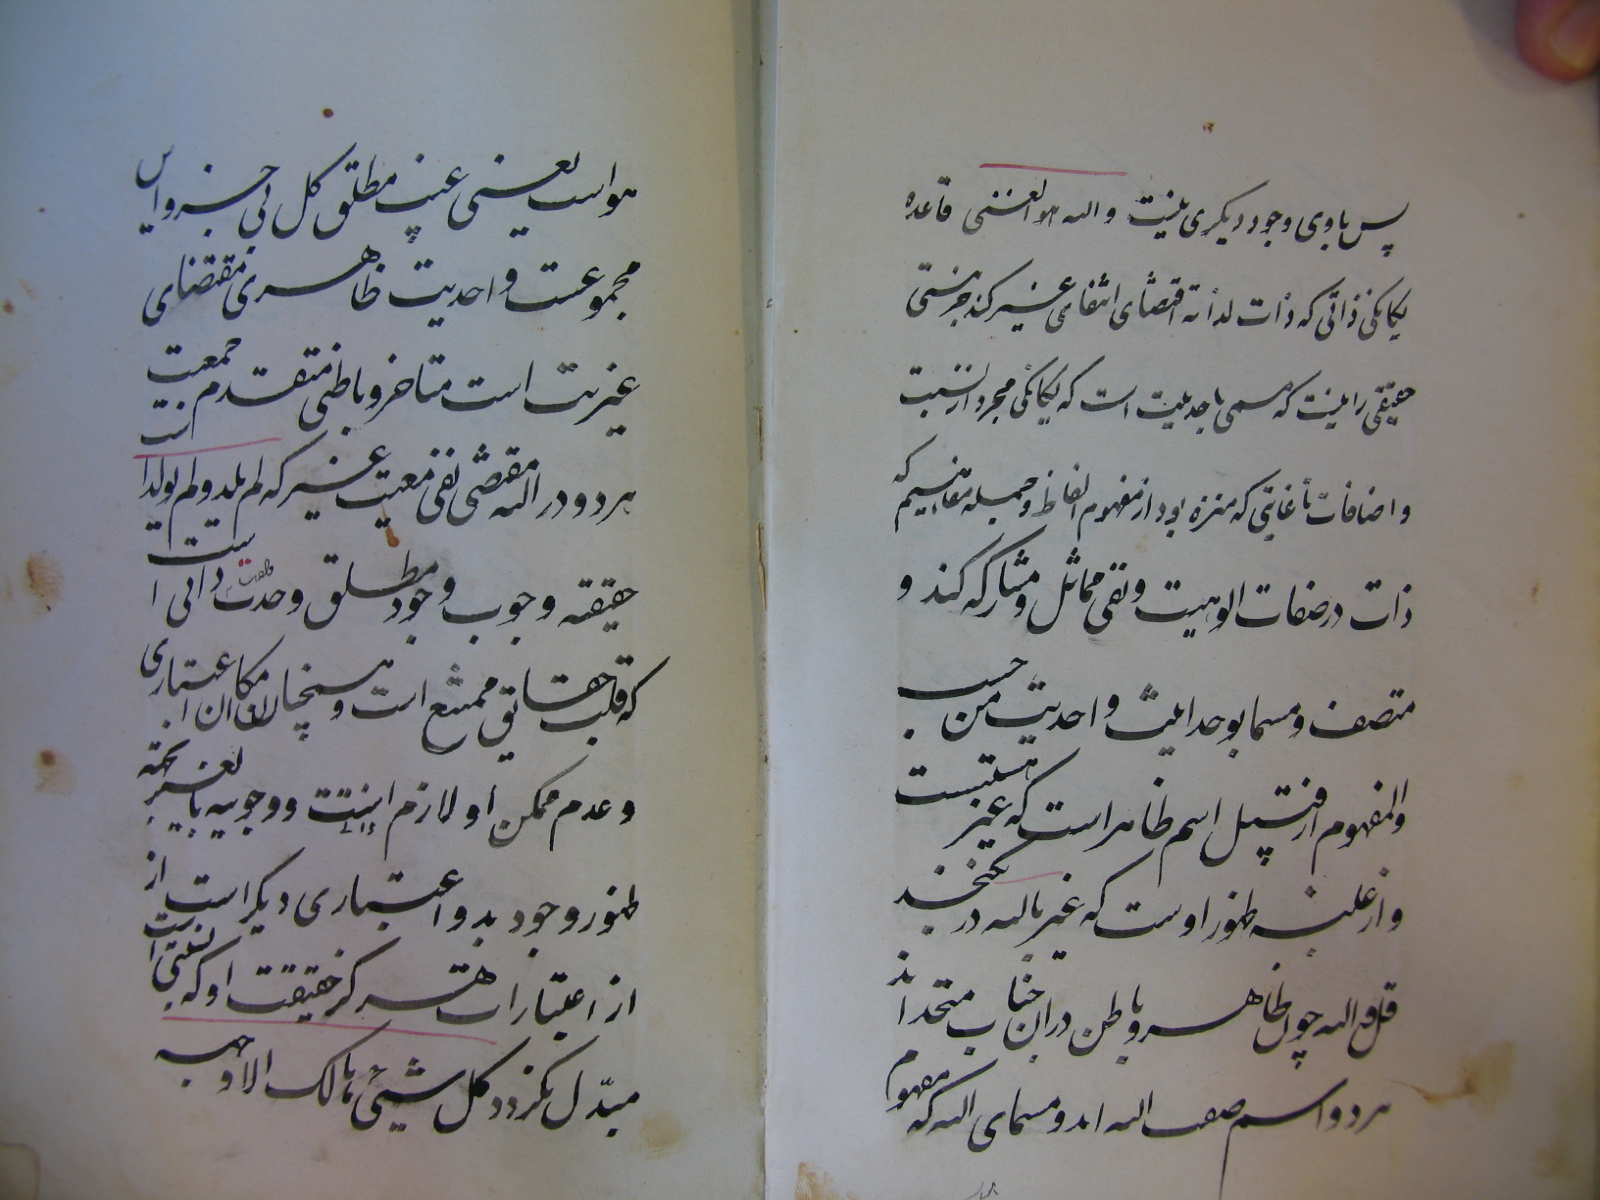 پس باوی وجود دیگری نیست والله هو الغنی قاعده
یکانکی ذاتی که ذات لذاته اقتضای انتفای غیر کند جز هستی
حقیقی را نیست که مسمی باحدیت است که یکانکی مجرد از نسبت
و اضافات تا غایتی که منزه بود از مفهوم الفاظ و جمله مفاهیم که
ذات در صفات الوهیت و نفی مماثل و مشارکه کند و
متصف و مسما بوحدانیت و احدیت من حیث
المفهوم از قبیل اسم ظاهر است که غیر نیست
و از غلبه ظهور اوست که غیر بالله در نکنجد
قل هو الله چون ظاهر و باطن در ان جناب متحد اند
هر دو اسم صفت الله اند و مسمای الله که مفهوم
هو است یعنی غیب مطلق کل بی جزو و اس
مجموعست و احدیت ظاهری مقتضای
غیریت است متاخر و باطنی متقدم جمعیت
هر دو در الله مقتضی نفی معیت غیر که لم یلد و لم یولد
حقیقه وجوب وجود مطلق وحدت ذاتی است
که قلب حقایق ممتنع است و همچنان امکان اعتباری
و عدم ممکن او لازم اینت و وجوبیه بالغیر
ظهور وجود بدو اعتباری دیکر است از
از اعتبارات هر کز حقیقت او که نیستی است
مبدّل نکردد کل شیئ هالک الا وجهه